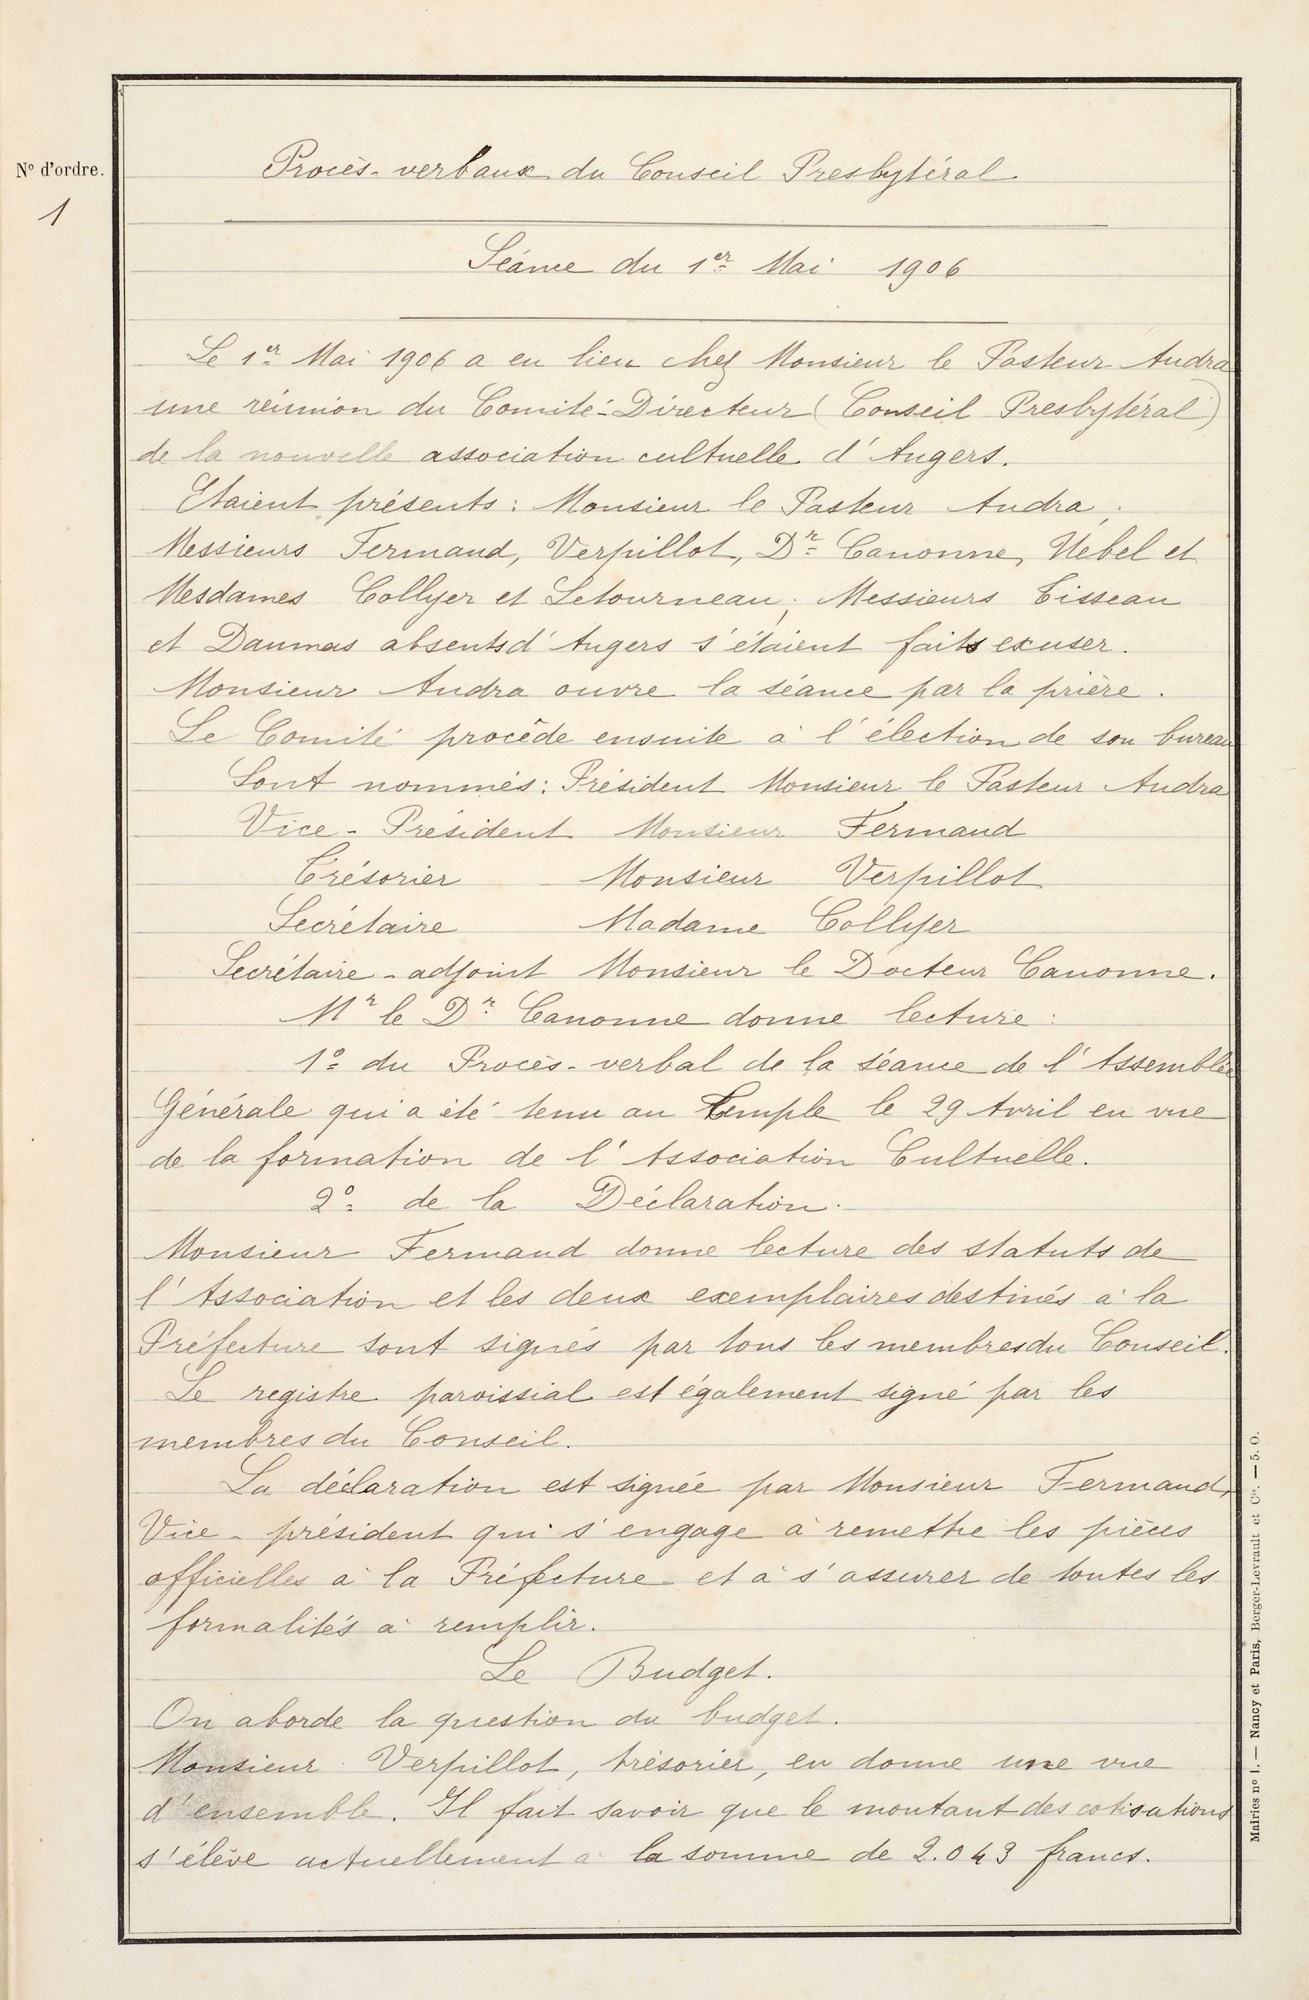 N° d'ordre.
1
Procès-verbaux du Conseil Presbytéral
Séance du 1er Mai 1906
Le 1er Mai 1906 a eu lieu chez Monsieur le Pasteur Audra
une réunion du Comité-Directeur (Conseil Presbytéral)
de la nouvelle association cultuelle d'Angers.
Etaient présents : Monsieur le Pasteur Audra ;
Messieurs Fermaud, Verpillot, Dr Canonne, Nebel et
Mesdames Collyer et Letourneau ; Messieurs Tisseau
et Daumas absents d'Angers s'étaient faits excuser.
Monsieur Audra ouvre la séance par la prière.
Le Comité procède ensuite à l'élection de son bureau
Sont nommés : Président Monsieur le Pasteur Audra
Vice-Président Monsieur Fermaud
Trésorier Monsieur Verpillot
Secrétaire Madame Collyer
Secrétaire-adjoint Monsieur le Docteur Canonne.
Mr le Dr Canonne donne lecture :
1° du Procès-verbal de la séance de l'Assemblée
Générale qui a été tenu au Temple le 29 Avril en vue
de la formation de l'Association Cultuelle.
2° de la Déclaration.
Monsieur Fermaud donne lecture des statuts de
l'Association et les deux exemplaires destinés à la
Préfecture sont signés par tous les membres du Conseil.
Le registre paroissial est également signé par les
membres du Conseil.
La déclaration est signée par Monsieur Fermaud,
Vice-président qui s'engage à remettre les pièces
officielles à la Préfecture et à s'assurer de toutes les
formalités à remplir.
Le Budget.
On aborde la question du budget.
Monsieur Verpillot, trésorier, en donne une vue
d'ensemble. Il fait savoir que le montant des cotisations
s'élève actuellement à la somme de 2.043 francs.
Mairies n° 1. — Nancy et Paris, Berger-Levrault et Cie. — 5. O.